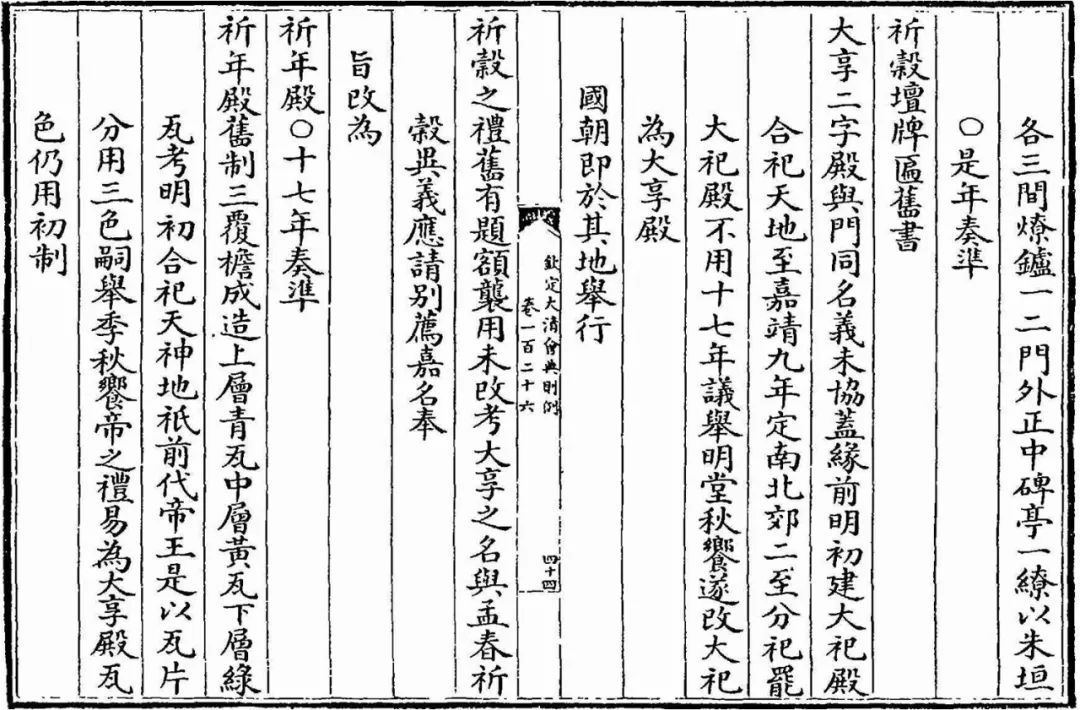 各三間燎鑪一二門外正中碑亭一繚以朱垣
〇是年奏準
祈穀壇牌匾舊書
大享二字殿與門同名義未協蓋緣前明初建大祀殿
合祀天地至嘉靖九年定南北郊二至分祀罷
大祀殿不用十七年議舉明堂秋饗遂改大祀
為大享殿
國朝即於其地舉行
欽定大清會典則例
卷一百二十六
四十四
祈穀之禮舊有題額襲用未改考大享之名與孟春祈
穀異義應請别薦嘉名奉
旨改為
祈年殿〇十七年奏準
祈年殿舊制三覆檐成造上層青瓦中層黃瓦下層綠
瓦考明初合祀天神地祇前代帝王是以瓦片
分用三色嗣舉季秋饗帝之禮易為大享殿瓦
色仍用初制